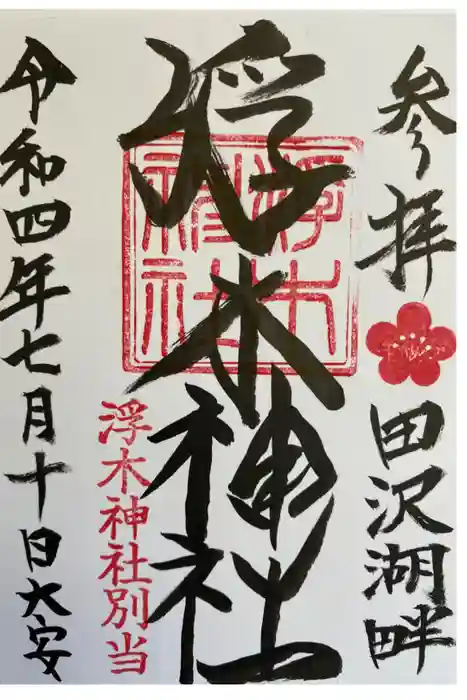 参拝
田沢湖畔
浮木神社
浮木神社
浮木神社別当
令和四年七月十日大安